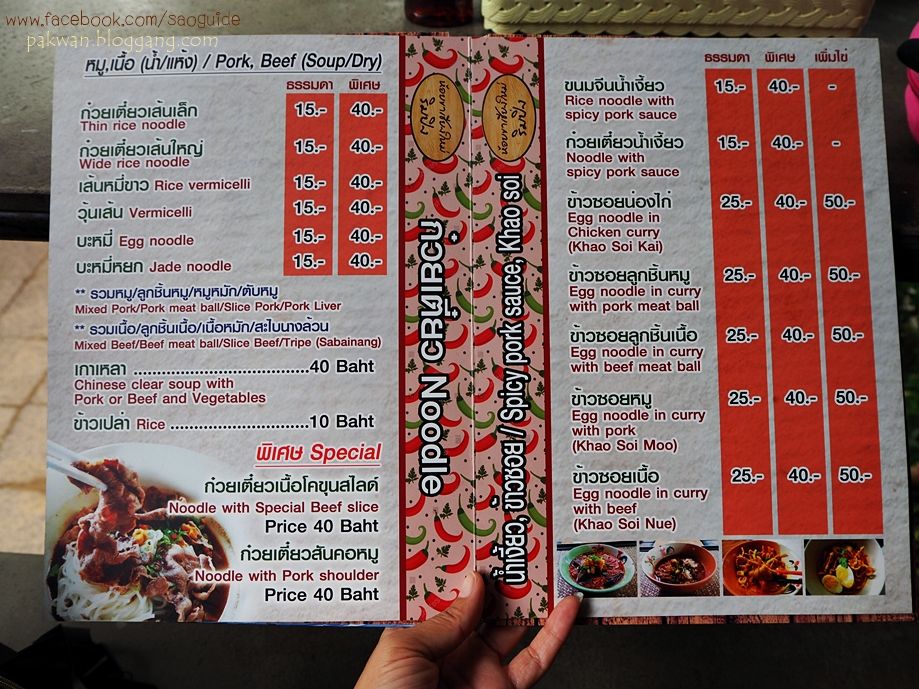 www.facebook.com/saoguide
pakwan.bloggang.com
หมู,เนื้อ (น้ำ/แห้ง) / Pork, Beef (Soup/Dry)
ธรรมดา พิเศษ
ก๋วยเตี๋ยวเส้นเล็ก 15.- 40.-
Thin rice noodle
ก๋วยเตี๋ยวเส้นใหญ่ 15.- 40.-
Wide rice noodle
เส้นหมี่ขาว Rice vermicelli 15.- 40.-
วุ้นเส้น Vermicelli 15.- 40.-
บะหมี่ Egg noodle 15.- 40.-
บะหมี่หยก Jade noodle 15.- 40.-
** รวมหมู/ลูกชิ้นหมู/หมูหมัก/ตับหมู
Mixed Pork/Pork meat ball/Slice Pork/Pork Liver
** รวมเนื้อ/ลูกชิ้นเนื้อ/เนื้อหมัก/สะไบนางล้วน
Mixed Beef/Beef meat ball/Slice Beef/Tripe (Sabainang)
เกาเหลา ....................................40 Baht
Chinese clear soup with
Pork or Beef and Vegetables
ข้าวเปล่า Rice ............................10 Baht
พิเศษ Special
ก๋วยเตี๋ยวเนื้อโคขุนสไลด์
Noodle with Special Beef slice
Price 40 Baht
ก๋วยเตี๋ยวสันคอหมู
Noodle with Pork shoulder
Price 40 Baht
ก๋วยเตี๋ยว Noodle
น้ำเงี้ยว, ข้าวซอย // Spicy pork sauce, Khao soi
ธรรมดา พิเศษ เพิ่มไข่
ขนมจีนน้ำเงี้ยว 15.- 40.- -
Rice noodle with
spicy pork sauce
ก๋วยเตี๋ยวน้ำเงี้ยว 15.- 40.- -
Noodle with
spicy pork sauce
ข้าวซอยน่องไก่ 25.- 40.- 50.-
Egg noodle in
Chicken curry
(Khao Soi Kai)
ข้าวซอยลูกชิ้นหมู 25.- 40.- 50.-
Egg noodle in curry
with pork meat ball
ข้าวซอยลูกชิ้นเนื้อ 25.- 40.- 50.-
Egg noodle in curry
with beef meat ball
ข้าวซอยหมู 25.- 40.- 50.-
Egg noodle in curry
with pork
(Khao Soi Moo)
ข้าวซอยเนื้อ 25.- 40.- 50.-
Egg noodle in curry
with beef
(Khao Soi Nue)